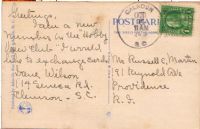 Greetings,
I am a new
number in the Hobby
New Club - I would
like to exchange cards
Dave Wilson
114 Seneca Rd.
Clemson - S.C.
POSTCARD
CALHOUN
8 AM
S.C.
Mr Russell C. Martin
91 Reynolds Av
Providence
R.I.